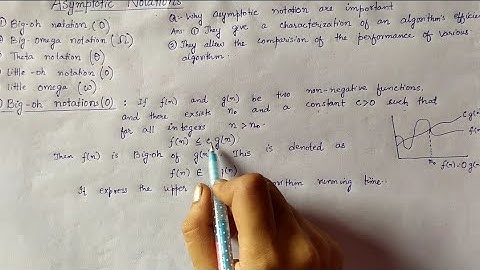 Asymptotic Notations
1) Big-oh notation (O)
2) Big-omega notation (Ω)
Theta notation (θ)
Little-oh notation (o)
little omega (ω)
Q- Why asymptotic notation are important
Ans: ① They give a characterization of an algorithm's efficien
② They allow the comparision of the performance of various
algorithm.
① Big-oh notations(O) : If f(n) and g(n) be two non-negative functions,
and there exsists n₀ and a constant c>0 such that
for all integers n>n₀
f(n) ≤ c g(n)
Then f(n) is Big-oh of g(n) This is denoted as
f(n) ∈ g(n)
It express the upper algorithm running time.
c g
n₀
f(n)=O g(n)